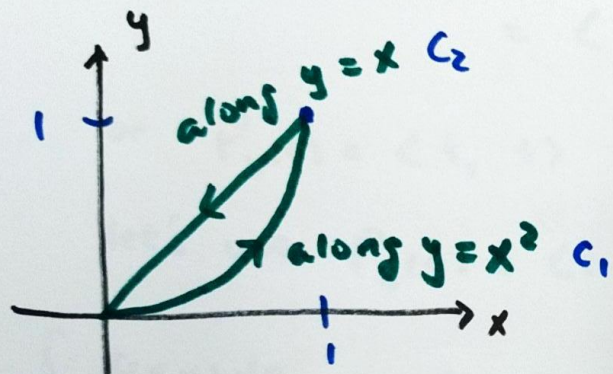 y
along y = x C₂
1
along y = x² C₁
x
1